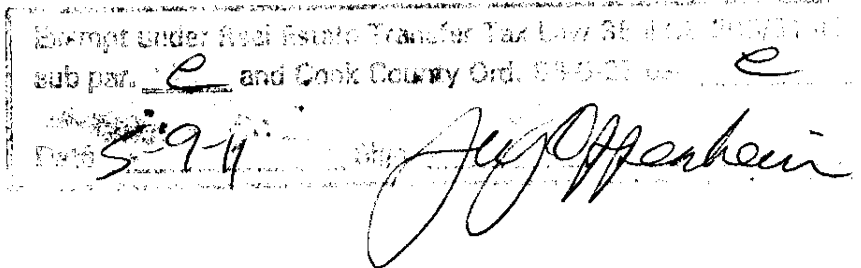 Exempt under Real Estate Transfer Tax Law 35 ILCS
sub par. e and Cook County Ord. e
Date 5-9-11 Oppenheim